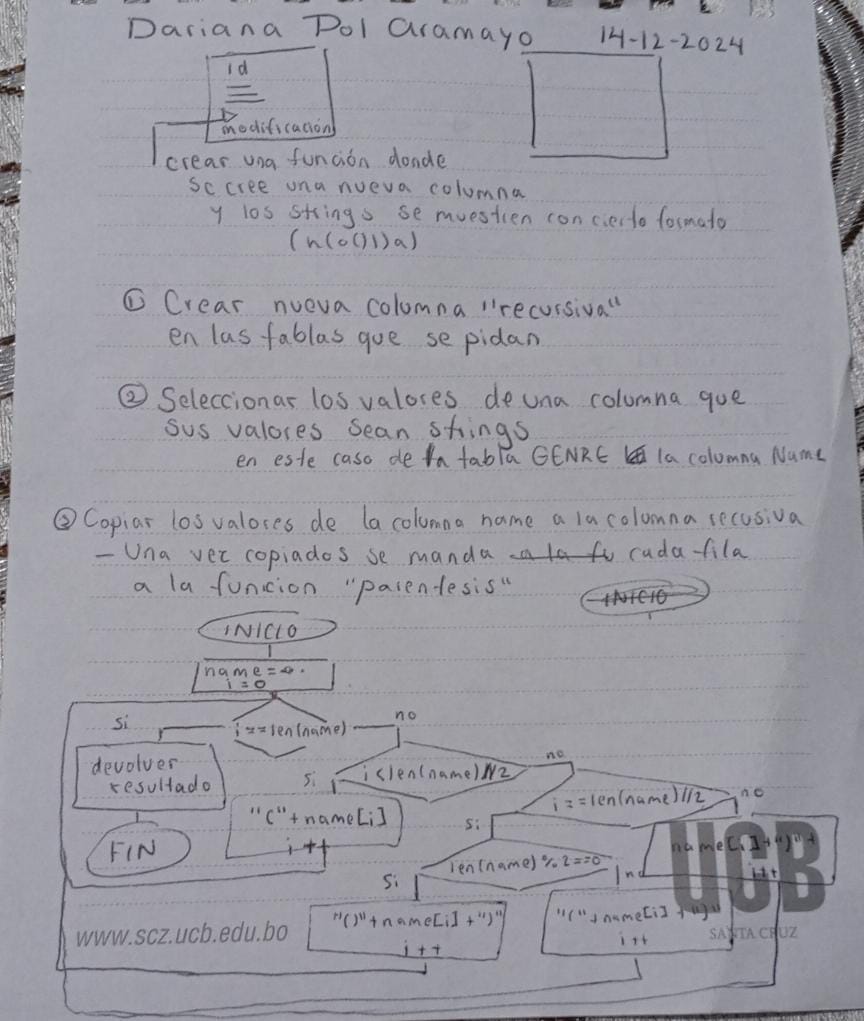 Dariana Pol Aramayo 14-12-2024
id
modificación
crear una función donde
se cree una nueva columna
y los strings se muestren con cierto formato
(n(o()))a)
① Crear nueva columna "recursiva"
en las tablas que se pidan
② Seleccionar los valores de una columna que
sus valores sean strings
en este caso de la tabla GENRE la columna Name
③ Copiar los valores de la columna name a la columna recusiva
- Una vez copiados se manda a la fu cada fila
a la funcion "parentesis"
INICIO
INICIO
name =
i = 0
i == len(name)
si
no
devolver
resultado
FIN
i < len(name)//2
si
no
"(" + name[i]
i++
i == len(name)//2
si
no
name[i] + ")" +
i++
len(name) % 2 == 0
si
no
"()" + name[i] + ")"
i++
"(" + name[i] + ")"
i++
www.scz.ucb.edu.bo
UCB
SANTA CRUZ